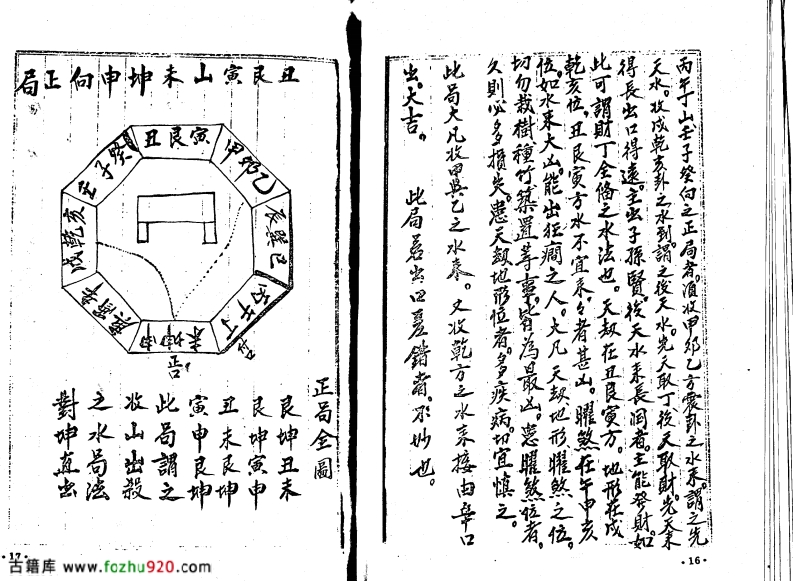 丙午丁山壬子癸向之正局者。須收甲卯乙方震卦之水來。謂之先
天水。收戍乾亥卦之水到。謂之後天水。先天取丁後天取財。先天來
得長出口得遠。主出子孫賢。後天水來長濶者。主能發財。如
此可謂財丁全偹之水法也。天劫在丑艮寅方。地形在戍
乾亥位。丑艮寅方水不宜來。々者甚凶。曜煞在午申亥
位。如水來大凶。能出狂癎之人。大凡天劫地形曜煞之位。
切勿栽樹種竹築置等事。皆為最凶。患曜煞位者。
久則必多損失。患天劫地形位者。多疾病。切宜慎之。
此局大凡收甲與乙之水奏。又收乾方之水來接由辛口
出。大吉。 此局若出口差錯者。不妙也。
·16·
丑艮寅山未坤申向正局
丑艮寅
甲卯乙
辰巽巳
丙午丁
未坤申
庚酉辛
戍乾亥
壬子癸
吉
正局全圖
艮坤丑未
艮坤寅申
丑未艮坤
寅申艮坤
此局謂之
收山出殺
之水局法
對坤直出
·17·
古籍库 www.fozhu920.com